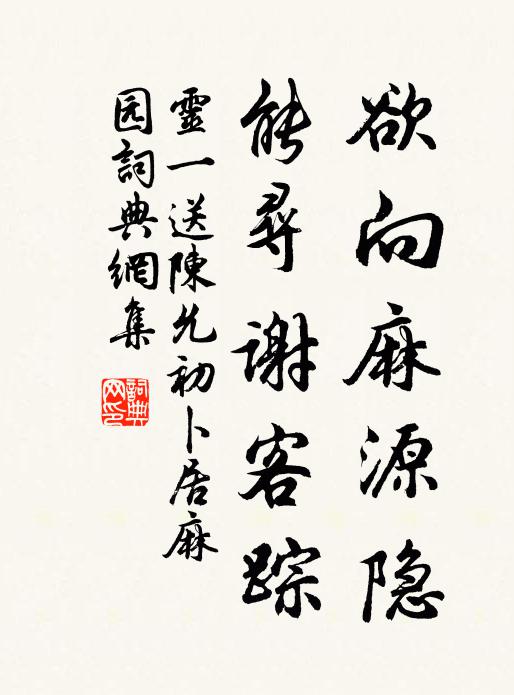 欲向麻源隐
能尋谢客踪
靈一送陳允初卜居麻
园詞典網集
詞典网印